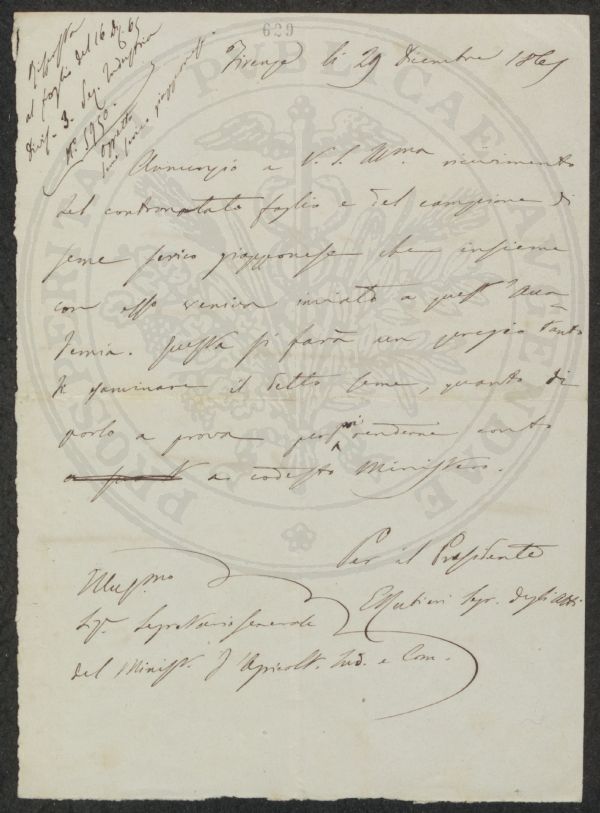 629
Risposta
al foglio del 16 Dbe 65
Divis. 3. Sez. Industria
No. 5750.
Oggetto
Seme serico giapponese
Firenze li 29 Dicembre 1865
Annunzio a V. S. Illma ricevimento
del contronotato foglio e del campione di
seme serico giapponese che insieme
con esso veniva inviato a quest' Acca-
demia. Questa si farà un pregio tanto
d' esaminare il detto seme, quanto di
porlo a prova per poi renderne conto
a codesto Ministero.
Per il Presidente
Segr. degli Atti
Illusmo
Sigr. Segretario Generale
del Minist. d'Agricolt. Ind. e Com.
PROSPERITATI PUBLICAE AUGENDAE